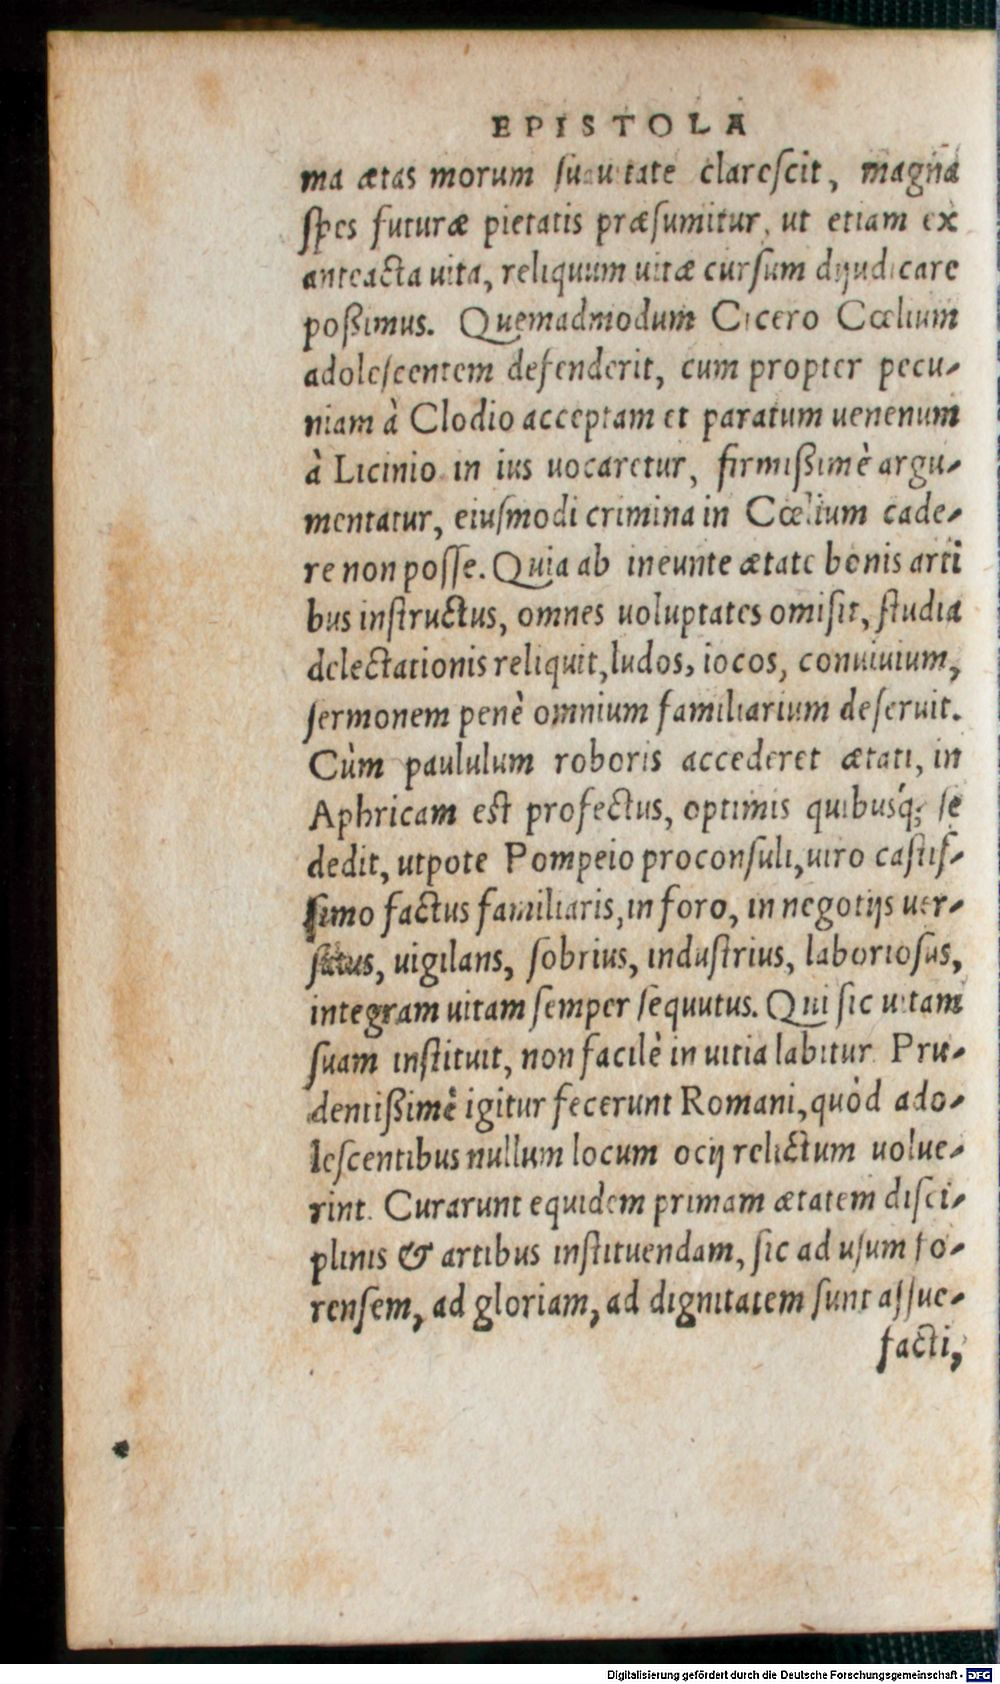 EPISTOLA
ma ætas morum suauitate clarescit, magna
spes futuræ pietatis præsumitur, ut etiam ex
anteacta uita, reliquum uitæ cursum dijudicare
poßimus. Quemadmodum Cicero Cœlium
adolescentem defenderit, cum propter pecu-
niam à Clodio acceptam et paratum uenenum
à Licinio in ius uocaretur, firmißimè argu-
mentatur, eiusmodi crimina in Cœlium cade-
re non posse. Quia ab ineunte ætate bonis arti
bus instructus, omnes uoluptates omisit, studia
delectationis reliquit, ludos, iocos, conuiuium,
sermonem penè omnium familiarium deseruit.
Cùm paululum roboris accederet ætati, in
Aphricam est profectus, optimis quibusq́; se
dedit, utpote Pompeio proconsuli, uiro castis-
simo factus familiaris, in foro, in negotijs uer-
satus, uigilans, sobrius, industrius, laboriosus,
integram uitam semper sequutus. Qui sic uitam
suam instituit, non facilè in uitia labitur. Pru-
dentißimè igitur fecerunt Romani, quòd ado-
lescentibus nullum locum ocij relictum uolue-
rint. Curarunt equidem primam ætatem disci-
plinis & artibus instituendam, sic ad usum fo-
rensem, ad gloriam, ad dignitatem sunt assue-
facti,
Digitalisierung gefördert durch die Deutsche Forschungsgemeinschaft - DFG